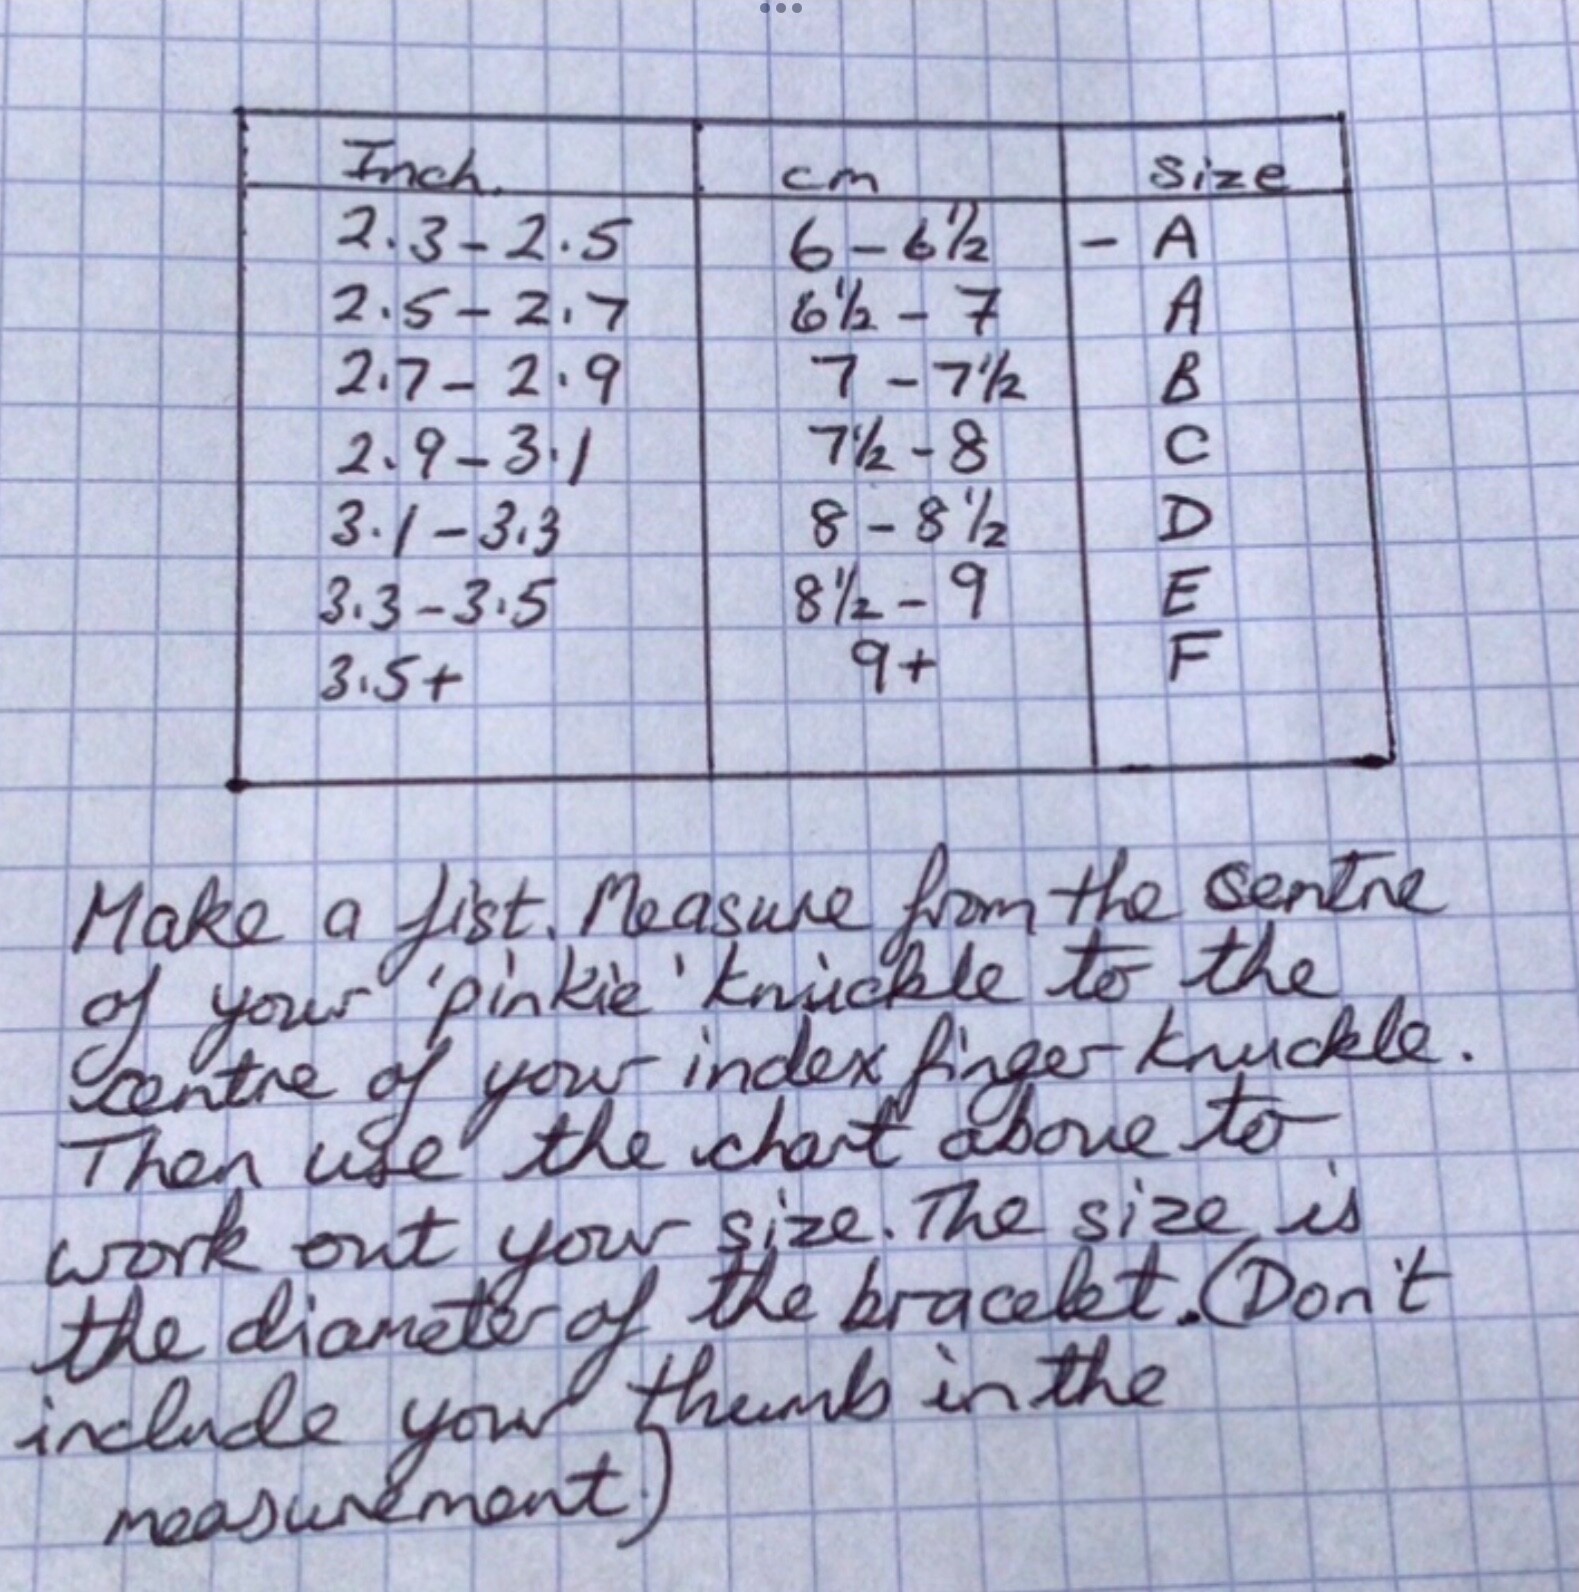 Inch. cm Size
2.3 - 2.5 6 - 6½ - A
2.5 - 2.7 6½ - 7 A
2.7 - 2.9 7 - 7½ B
2.9 - 3.1 7½ - 8 C
3.1 - 3.3 8 - 8½ D
3.3 - 3.5 8½ - 9 E
3.5+ 9+ F
Make a fist. Measure from the sentre
of your 'pinkie' knuckle to the
centre of your index finger knuckle.
Then use the chart above to
work out your size. The size is
the diameter of the bracelet. (Don't
include your thumb in the
measurement.)